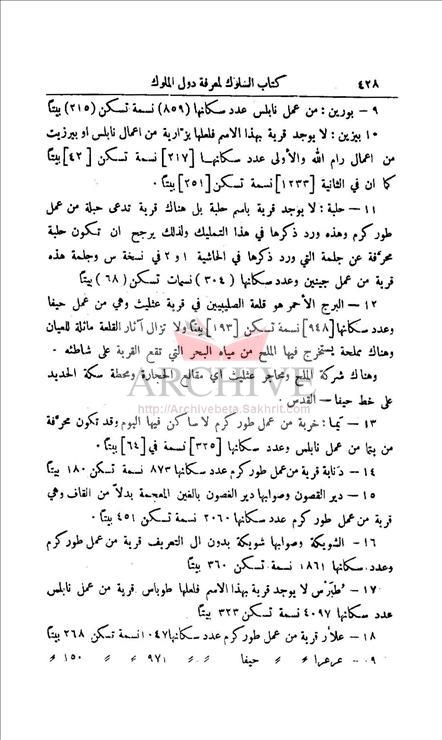 ٤٢٨ كتاب السلوك لمعرفة دول الملوك
٩ – بورين : من عمل نابلس عدد سكانها (٨٥٩) نسمة تسكن (٢١٥) بيتاً
١٠ بيزين : لا يوجد قرية بهذا الاسم فلعلها بزارية من اعمال نابلس او بيرزيت
من اعمال رام الله والأولى عدد سكانها [٢١٧] نسمة تسكن [٤٢] بيتاً
كما ان في الثانية [١٢٣٣] نسمة تسكن [٢٥١] بيتاً .
١١ – حلبة : لا يوجد قرية باسم حلبة بل هناك قرية تدعى حبلة من عمل
طور كرم وهذه ورد ذكرها في هذا التمليك ولذلك يرجح ان تكون حلبة
محرّفة عن جلمة التي ورد ذكرها في الحاشية ١ و ٢ في نسخة س وجلمة هذه
قرية من عمل جينين وعدد سكانها (٣٠٤) نسمات تسكن (٦٨) بيتاً
١٢ – البرج الأحمر هو قلعة الصليبيين في قرية عثليث وهي من عمل حيفا
وعدد سكانها [٩٤٨] نسمة تسكن [١٩٣] بيتاً ولا تزال آثار القلعة ماثلة للعيان
وهناك مملحة يستخرج فيها الملح من مياه البحر التي تقع القرية على شاطئه .
وهناك شركة الملح ومحاجر عثليث اي مقالع الحجارة ومحطة سكة الحديد
على خط حيفا – القدس .
ARCHIVE
http://Archivebeta.Sakhrit.com
١٣ – يَما : خربة من عمل طور كرم لا ساكن فيها اليوم وقد تكون محرّفة
من يتما من عمل نابلس وعدد سكانها [٣٢٥] نسمة في [٦٤] بيتاً .
١٤ – دنابة قرية من عمل طور كرم عدد سكانها ٨٧٣ نسمة تسكن ١٨٠ بيتاً
١٥ – دير القصون وصوابها دير الغصون بالغين المعجمة بدلاً من القاف وهي
قرية من عمل طور كرم عدد سكانها ٢٠٦٠ نسمة تسكن ٤٥١ بيتاً .
١٦– الشويكة وصوابها شويكة بدون ال التعريف قرية من عمل طور كرم
وعدد سكانها ١٨٦١ نسمة تسكن ٣٦٠ بيتاً
١٧ – طبرس لا يوجد قرية بهذا الاسم فلعلها طوباس قرية من عمل نابلس
عدد سكانها ٤٠٩٧ نسمة تسكن ٣٢٣ بيتاً
١٨ – علاّر قرية من عمل طور كرم عدد سكانها ١٠٤٧ نسمة تسكن ٢٦٨ بيتاً
٠٩ – عرعرا » » حيفا » » ٩٧١ » » ١٥٠ »